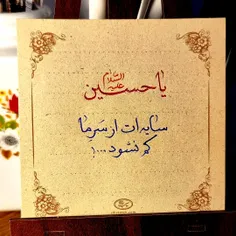 یا حسین علیه السلام
سایه ات از سر ما
کم نشود...!